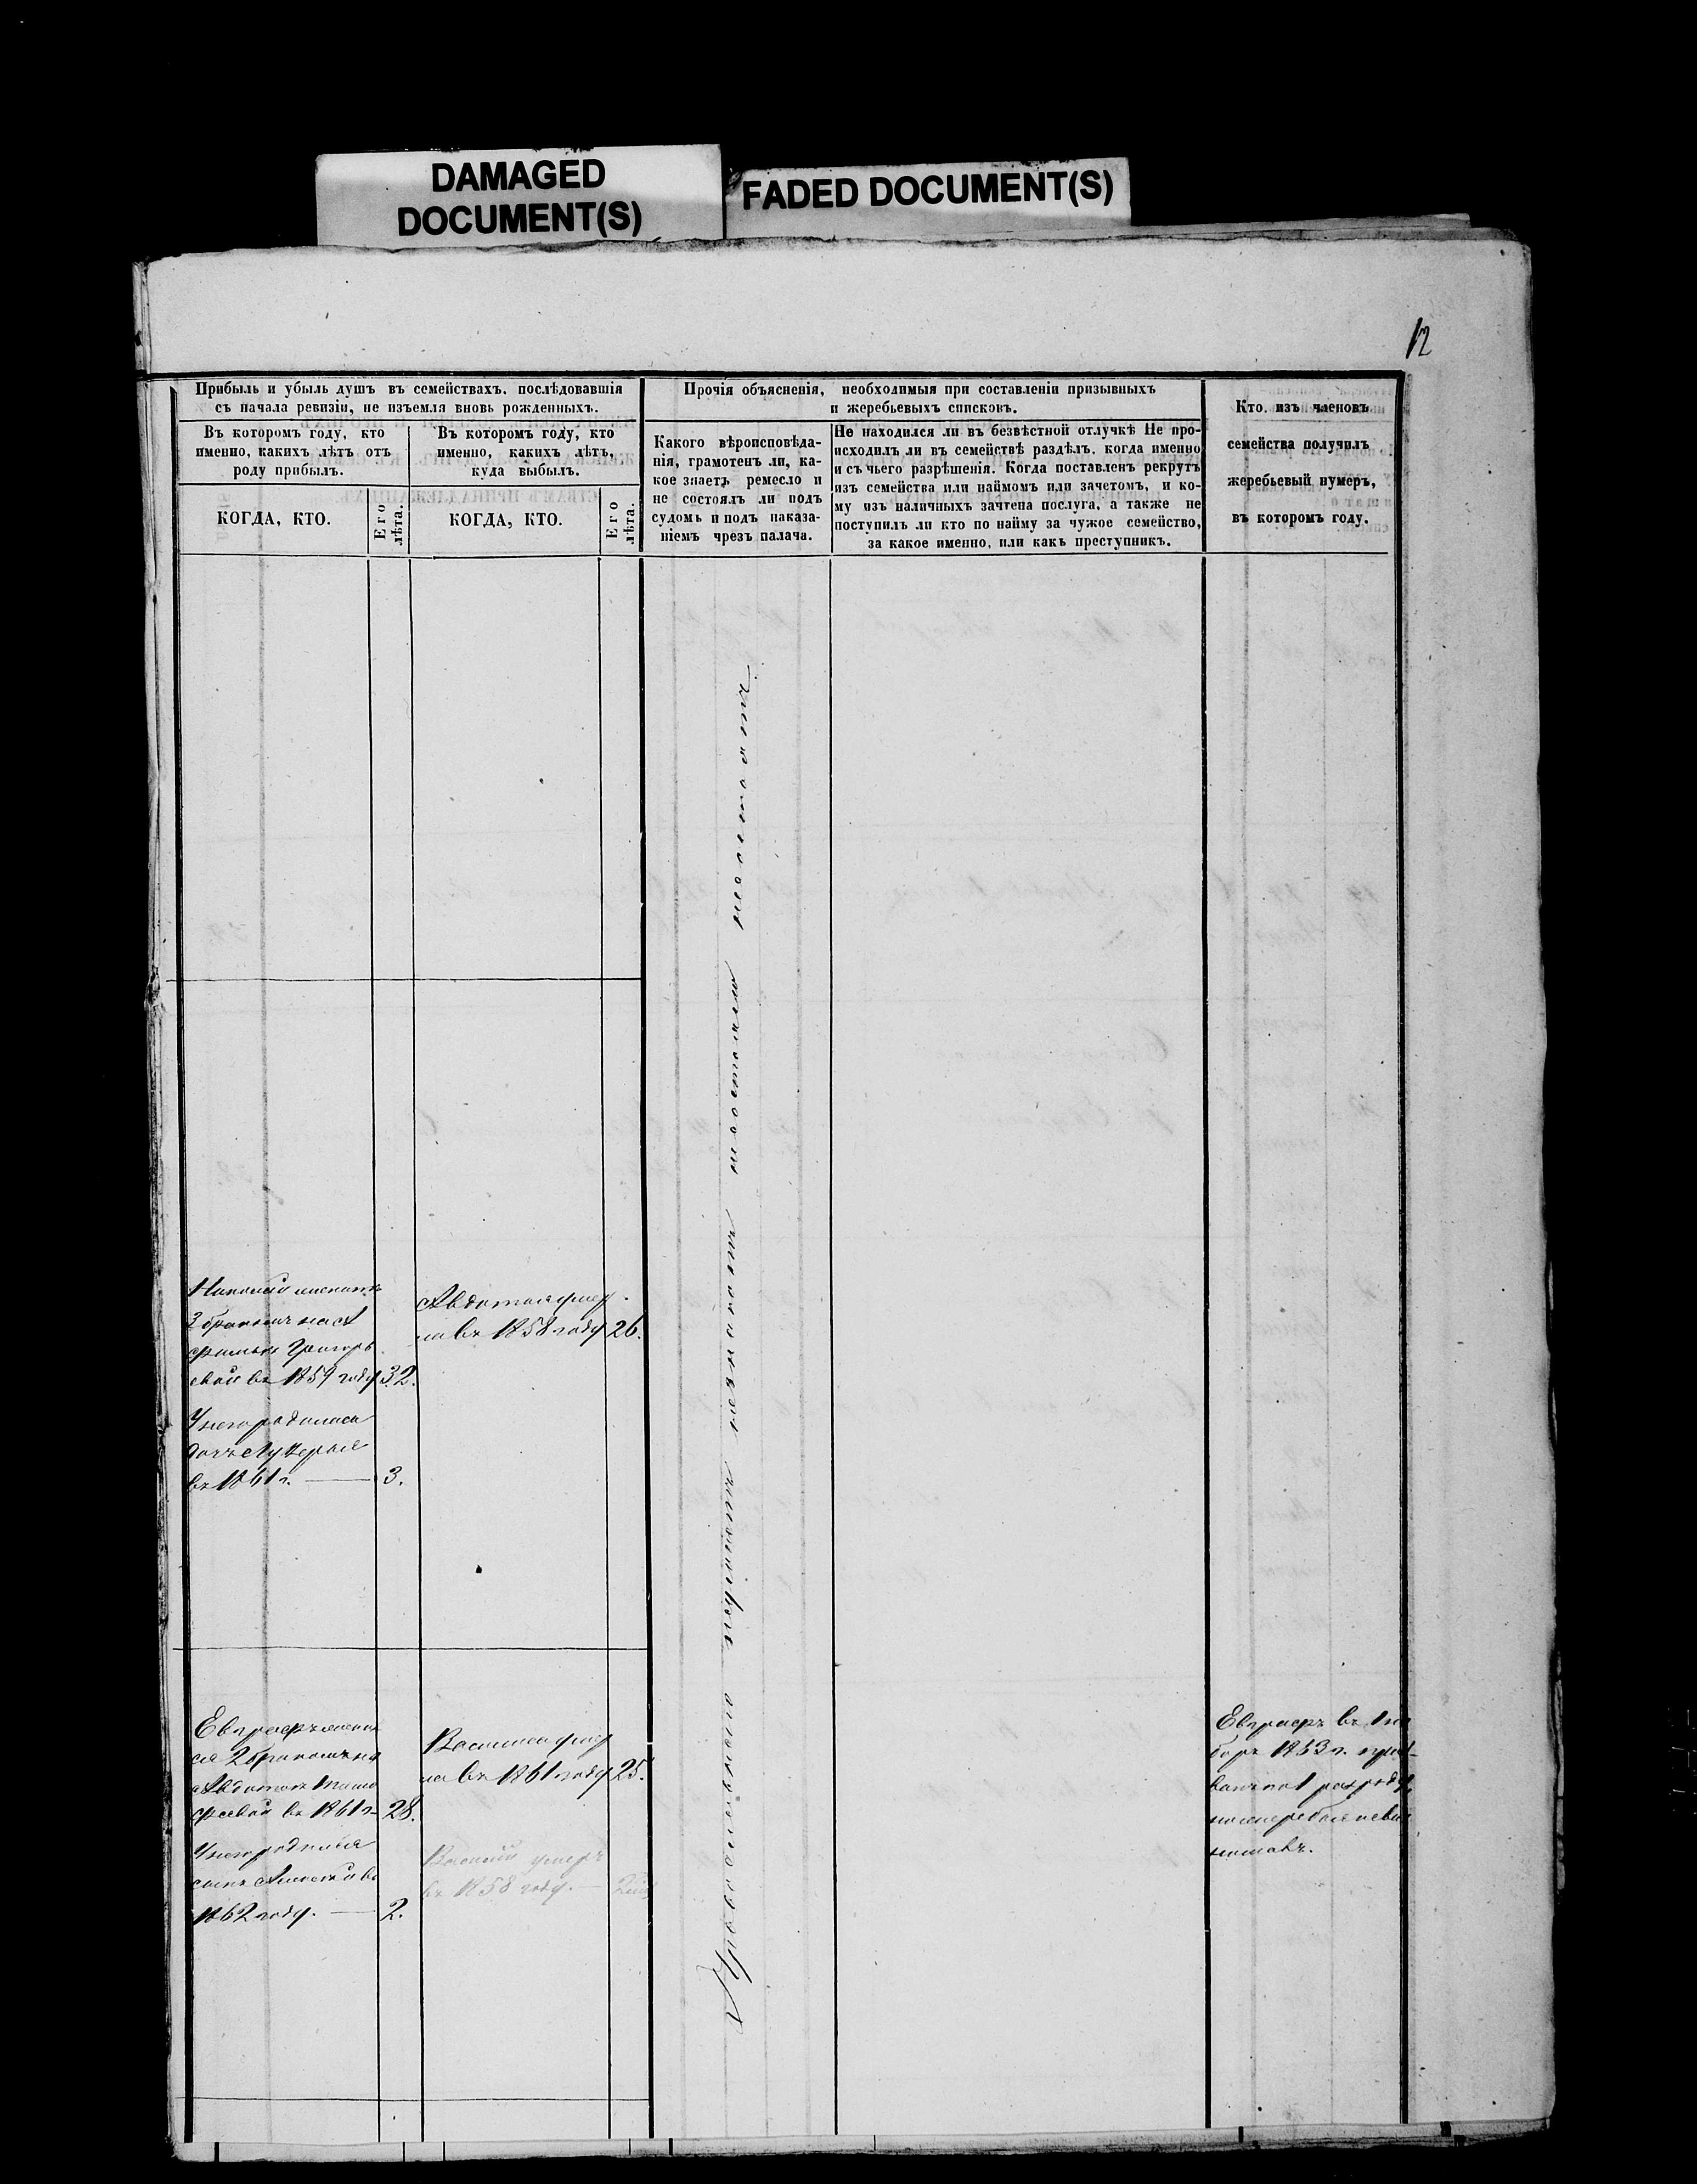 DAMAGED
DOCUMENT(S)
FADED DOCUMENT(S)
12
Прибыль и убыль душъ въ семействахъ, послѣдовавшія
съ начала ревизіи, не изъемля вновь рожденныхъ.
Въ которомъ году, кто
именно, какихъ лѣтъ отъ
роду прибылъ.
КОГДА, КТО.
Его
лѣта.
Въ которомъ году, кто
именно, какихъ лѣтъ,
куда выбылъ.
КОГДА, КТО.
Его
лѣта.
Прочія объясненія, необходимыя при составленіи призывныхъ
и жеребьевыхъ списковъ.
Какого вѣроисповѣда-
нія, грамотенъ ли, ка-
кое знаетъ ремесло и
не состоялъ ли подъ
судомъ и подъ наказа-
ніемъ чрезъ палача.
Не находился ли въ безвѣстной отлучкѣ Не про-
исходилъ ли въ семействѣ раздѣлъ, когда именно
и съ чьего разрѣшенія. Когда поставленъ рекрутъ
изъ семейства или наймомъ или зачетомъ, и ко-
му изъ наличныхъ зачтена послуга, а также не
поступилъ ли кто по найму за чужое семейство,
за какое именно, или какъ преступникъ.
Кто изъ членовъ
семейства получилъ
жеребьевый нумеръ,
въ которомъ году.
2 бракомъ на
Григорь
евой въ 1859 году 32.
У него родилась
дочь Лукерья
въ 1861 г. — 3.
Авдотья умер
ла въ 1858 году 26.
Евграфъ женил
ся 2 бракомъ на
Авдотье Тимо
феевой въ 1861 г. 28.
У него родился
сынъ Алексей въ
1862 году. — 2.
Василиса умер
ла въ 1861 году 25.
Василий умеръ
въ 1858 году. —
Православнаго незнаютъ несостояли несостоятъ
Евграфъ въ 1 на
боръ 1863 г.
ванъ по 1 разряду,